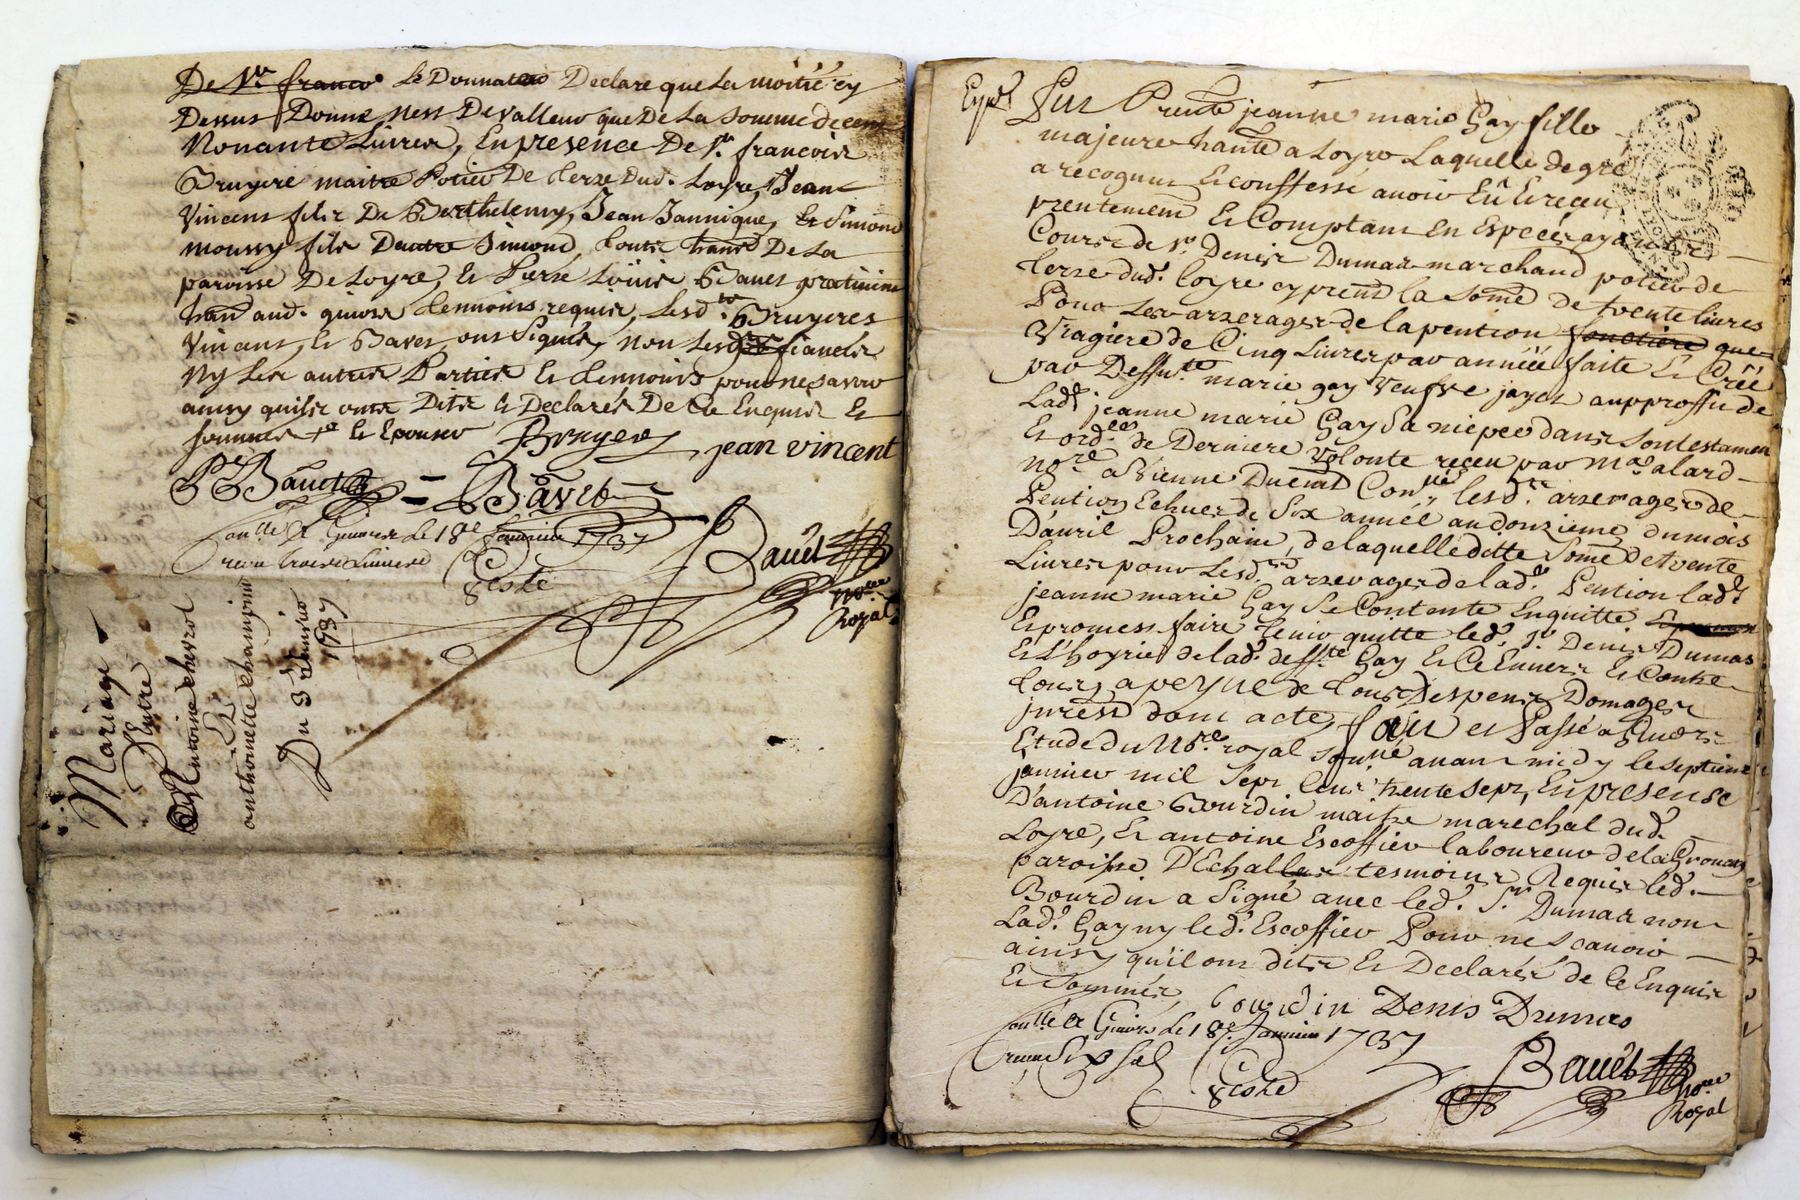 Le Donnateur Declare que La moitié cy
Dessus Donné nest De valleur que De La somme de cent
Nonante Livres, En presence De Sr. francois
Bruyere maitre Potier De terre dud. Loyre, Jean
Vincent fils De Berthelemy, Jean Jannique, Et Simond
moussy fils Dautre Simond, touts hants De La
paroisse De Loyre, Et Pierre Loüis Bavet praticien
hant aud. givors temoins requis, Lesd. Bruyeres
Vincent, Et Bavet, ont Signés, non Lesd. fiancés
Ny Les autres Parties Et temoins pour ne sçavoir
ainsy quils ont Dits Et Declarés De Ce Enquis Et
sommés Et Epouser Bruyere jean vincent
P Bavet Bavet
a Givors Le 18e Janvier 1737
Bavet
No.re
Royal
Mariage
Entre
Antoine chevrot
Et
anthoinette champin
Du 3 Janvier
1737
Fut Prente jeanne marie Gay fille
majeure hante a Loyre Laquelle de gré
a recognu Et confessé avoir Eû Et receu
prentement Et Comptant En Especes ayant
Cours de Sr. Denis Dumas marchand potier de
terre dud. Loyre cy prent la Some de trente livres
Pour Les arrerages de la pention fonciere que
Viagiere de Cinq Livres par année faite Et Créé
par Deffte. marie gay veufve jayet aupproffit de
Lad. jeanne marie Gay Sa niepce dans Son testamen
Et ordce. de Derniere Volonte receu par Me alard
nore. a Vienne Duemt Conllé Lesd. arrerages de
Pention Echues de Six année au douzieme du mois
Davril Prochain, de laquelle ditte Some de trente
Livres pour Lesd. arrerages de lad. Pention lad.
jeanne marie Gay Se Contente Enquitte
Et promest faire tenir quitte led. Sr. Denis Dumas
Et L'hoyrie de lad. deffte Gay Et Ce Envers Et Contre
tous a peyne de tous Despens Domages
jntrest dont acte, fait et Passé a Givors
Etude du Nore. royal sousné avant midy le septieme
janvier mil Sept Cent trente sept, En presense
D'antoine Bourdin maitre marechal dud.
Loyre, Et antoine Escoffier laboureur de la
paroisse D'Echallas tesmoins Requis led.
Bourdin a Signé avec led. Sr. Dumas non
Lad. Gay ny led. Escoffier Pour ne Scavoir
ainsy qu'il ont dits Et Declarés de Ce Enquis
Et Sommés, bourdin Denis Dumas
a Givors Le 18e Janvier 1737
Bavet
No.re
Royal